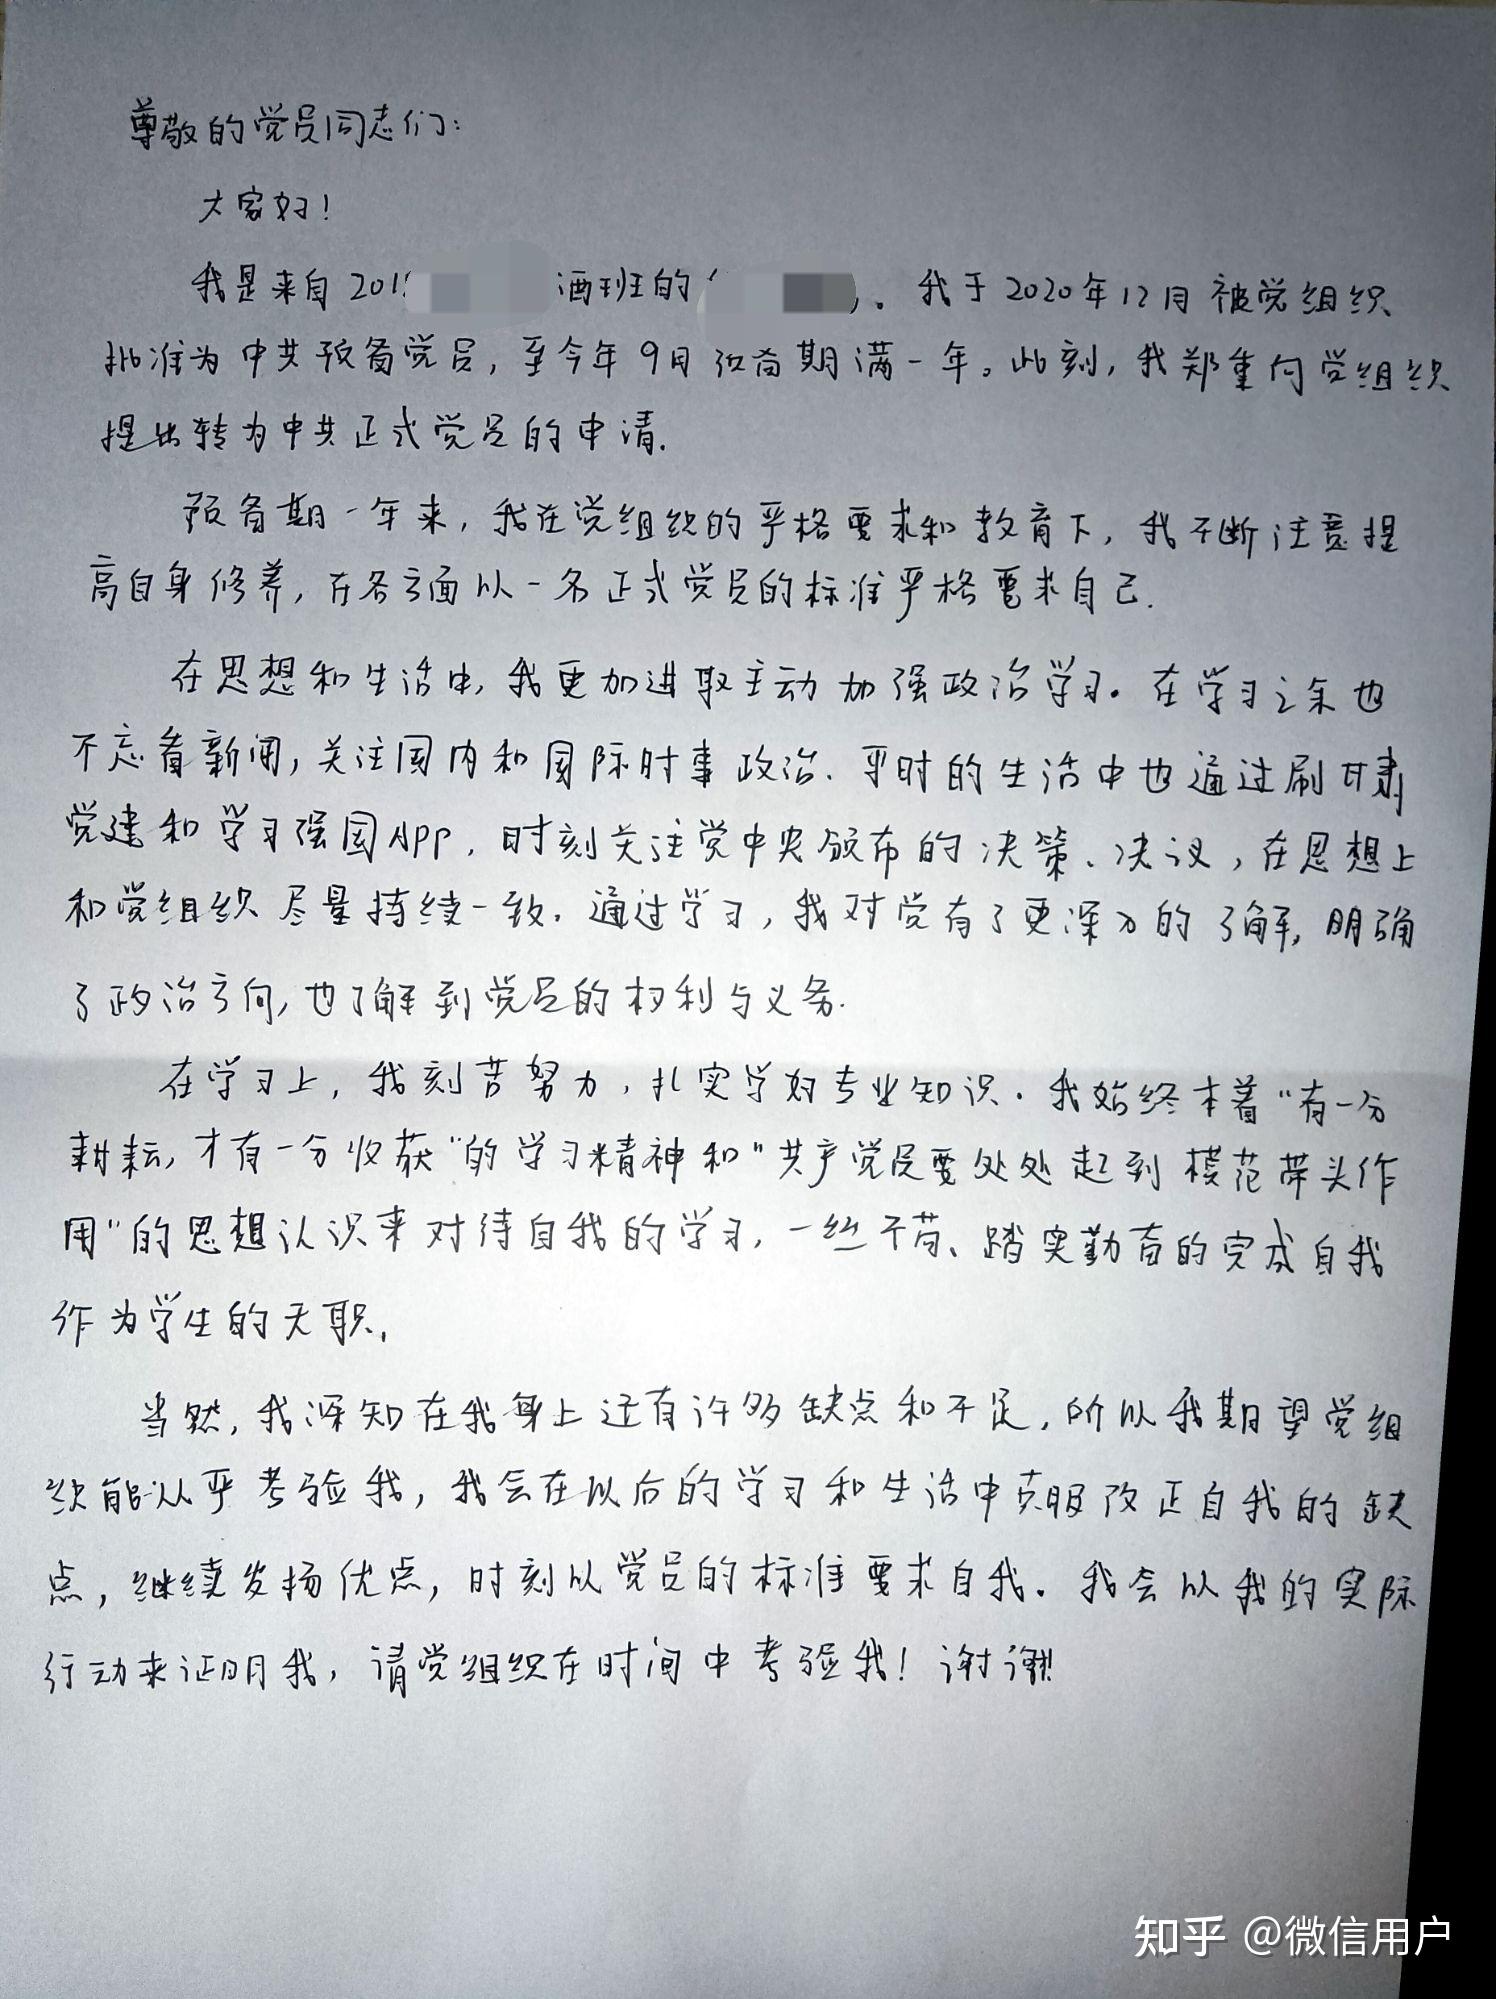 尊敬的党员同志们：
大家好！
我是来自201 酒班的 。我于2020年12月被党组织
批准为中共预备党员，至今年9月预备期满一年。此刻，我郑重向党组织
提出转为中共正式党员的申请.
预备期一年来，我在党组织的严格要求和教育下，我不断注意提
高自身修养，在各方面以一名正式党员的标准严格要求自己.
在思想和生活中，我更加进取主动加强政治学习。在学习之余也
不忘看新闻，关注国内和国际时事政治.平时的生活中也通过刷甘肃
党建和学习强国APP，时刻关注党中央颁布的决策、决议，在思想上
和党组织尽量持续一致.通过学习，我对党有了更深入的了解，明确
了政治方向，也了解到党员的权利与义务.
在学习上，我刻苦努力，扎实学好专业知识.我始终本着"有一分
耕耘，才有一分收获"的学习精神和"共产党员要处处起到模范带头作
用"的思想认识来对待自我的学习，一丝不苟、踏实勤奋的完成自我
作为学生的天职.
当然，我深知在我身上还有许多缺点和不足，所以我期望党组
织能从严考验我，我会在以后的学习和生活中克服改正自我的缺
点，继续发扬优点，时刻以党员的标准要求自我。我会以我的实际
行动来证明我，请党组织在时间中考验我！谢谢！
知乎 @微信用户